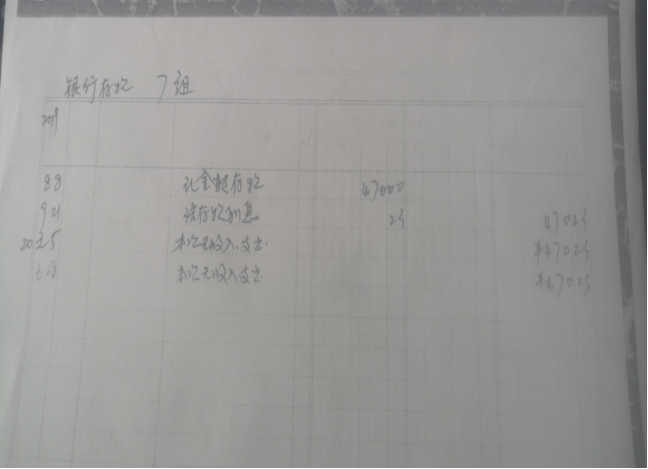 银行存款 7组
2019
8 8 现金转存款 47000
9 21 结存款利息 25 47025
20 2 5 本次无收入支出 ¥47025
6 28 本次无收入支出 ¥47025